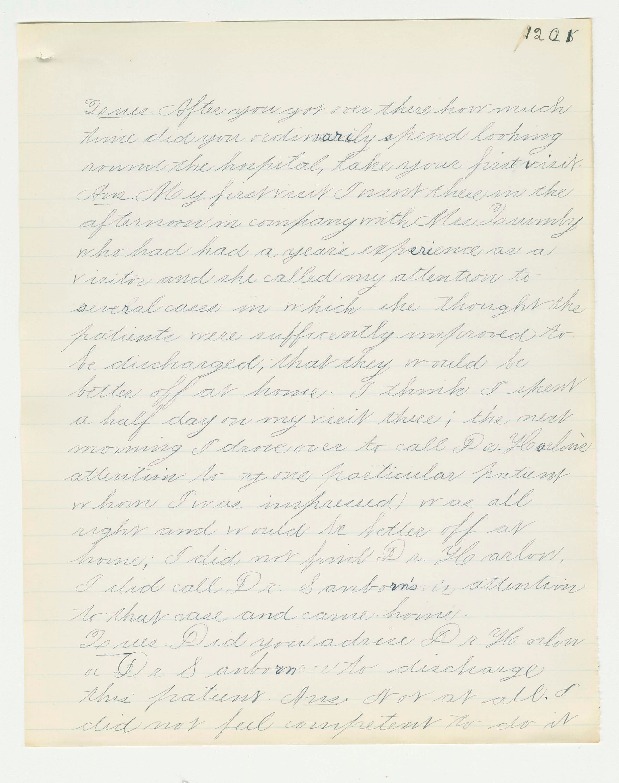 1201
Ques. After you got over there how much
time did you ordinarily spend looking
round the hospital, take your first visit.
Ans. My first visit I went there in the
afternoon in company with Mrs
who had had a years experience as a
visitor and she called my attention to
several cases in which she thought the
patients were sufficiently improved to
be discharged; that they would be
better off at home. I think I spent
a half day on my visit there; the next
morning I drove over to call Dr. Harlow's
attention to one particular patient
whom I was impressed, was all
right and would be better off at
home; I did not find Dr. Harlow.
I did call Dr. Sanborn's attention
to that case and came home.
Ques. Did you advise Dr Harlow
or Dr Sanborn to discharge
this patient. Ans. Not at all. I
did not feel competent to do it